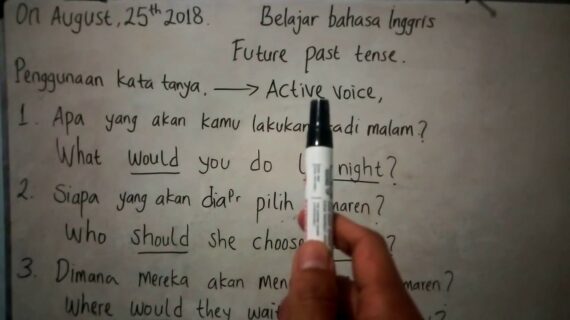 On August, 25th 2018. Belajar bahasa Inggris
Future past tense.
Penggunaan kata tanya. → Active voice,
1. Apa yang akan kamu lakukan tadi malam?
What would you do night?
2. Siapa yang akan dia Pr pilih ?
Who should she choose ?
3. Dimana mereka akan ?
Where would they wait ?